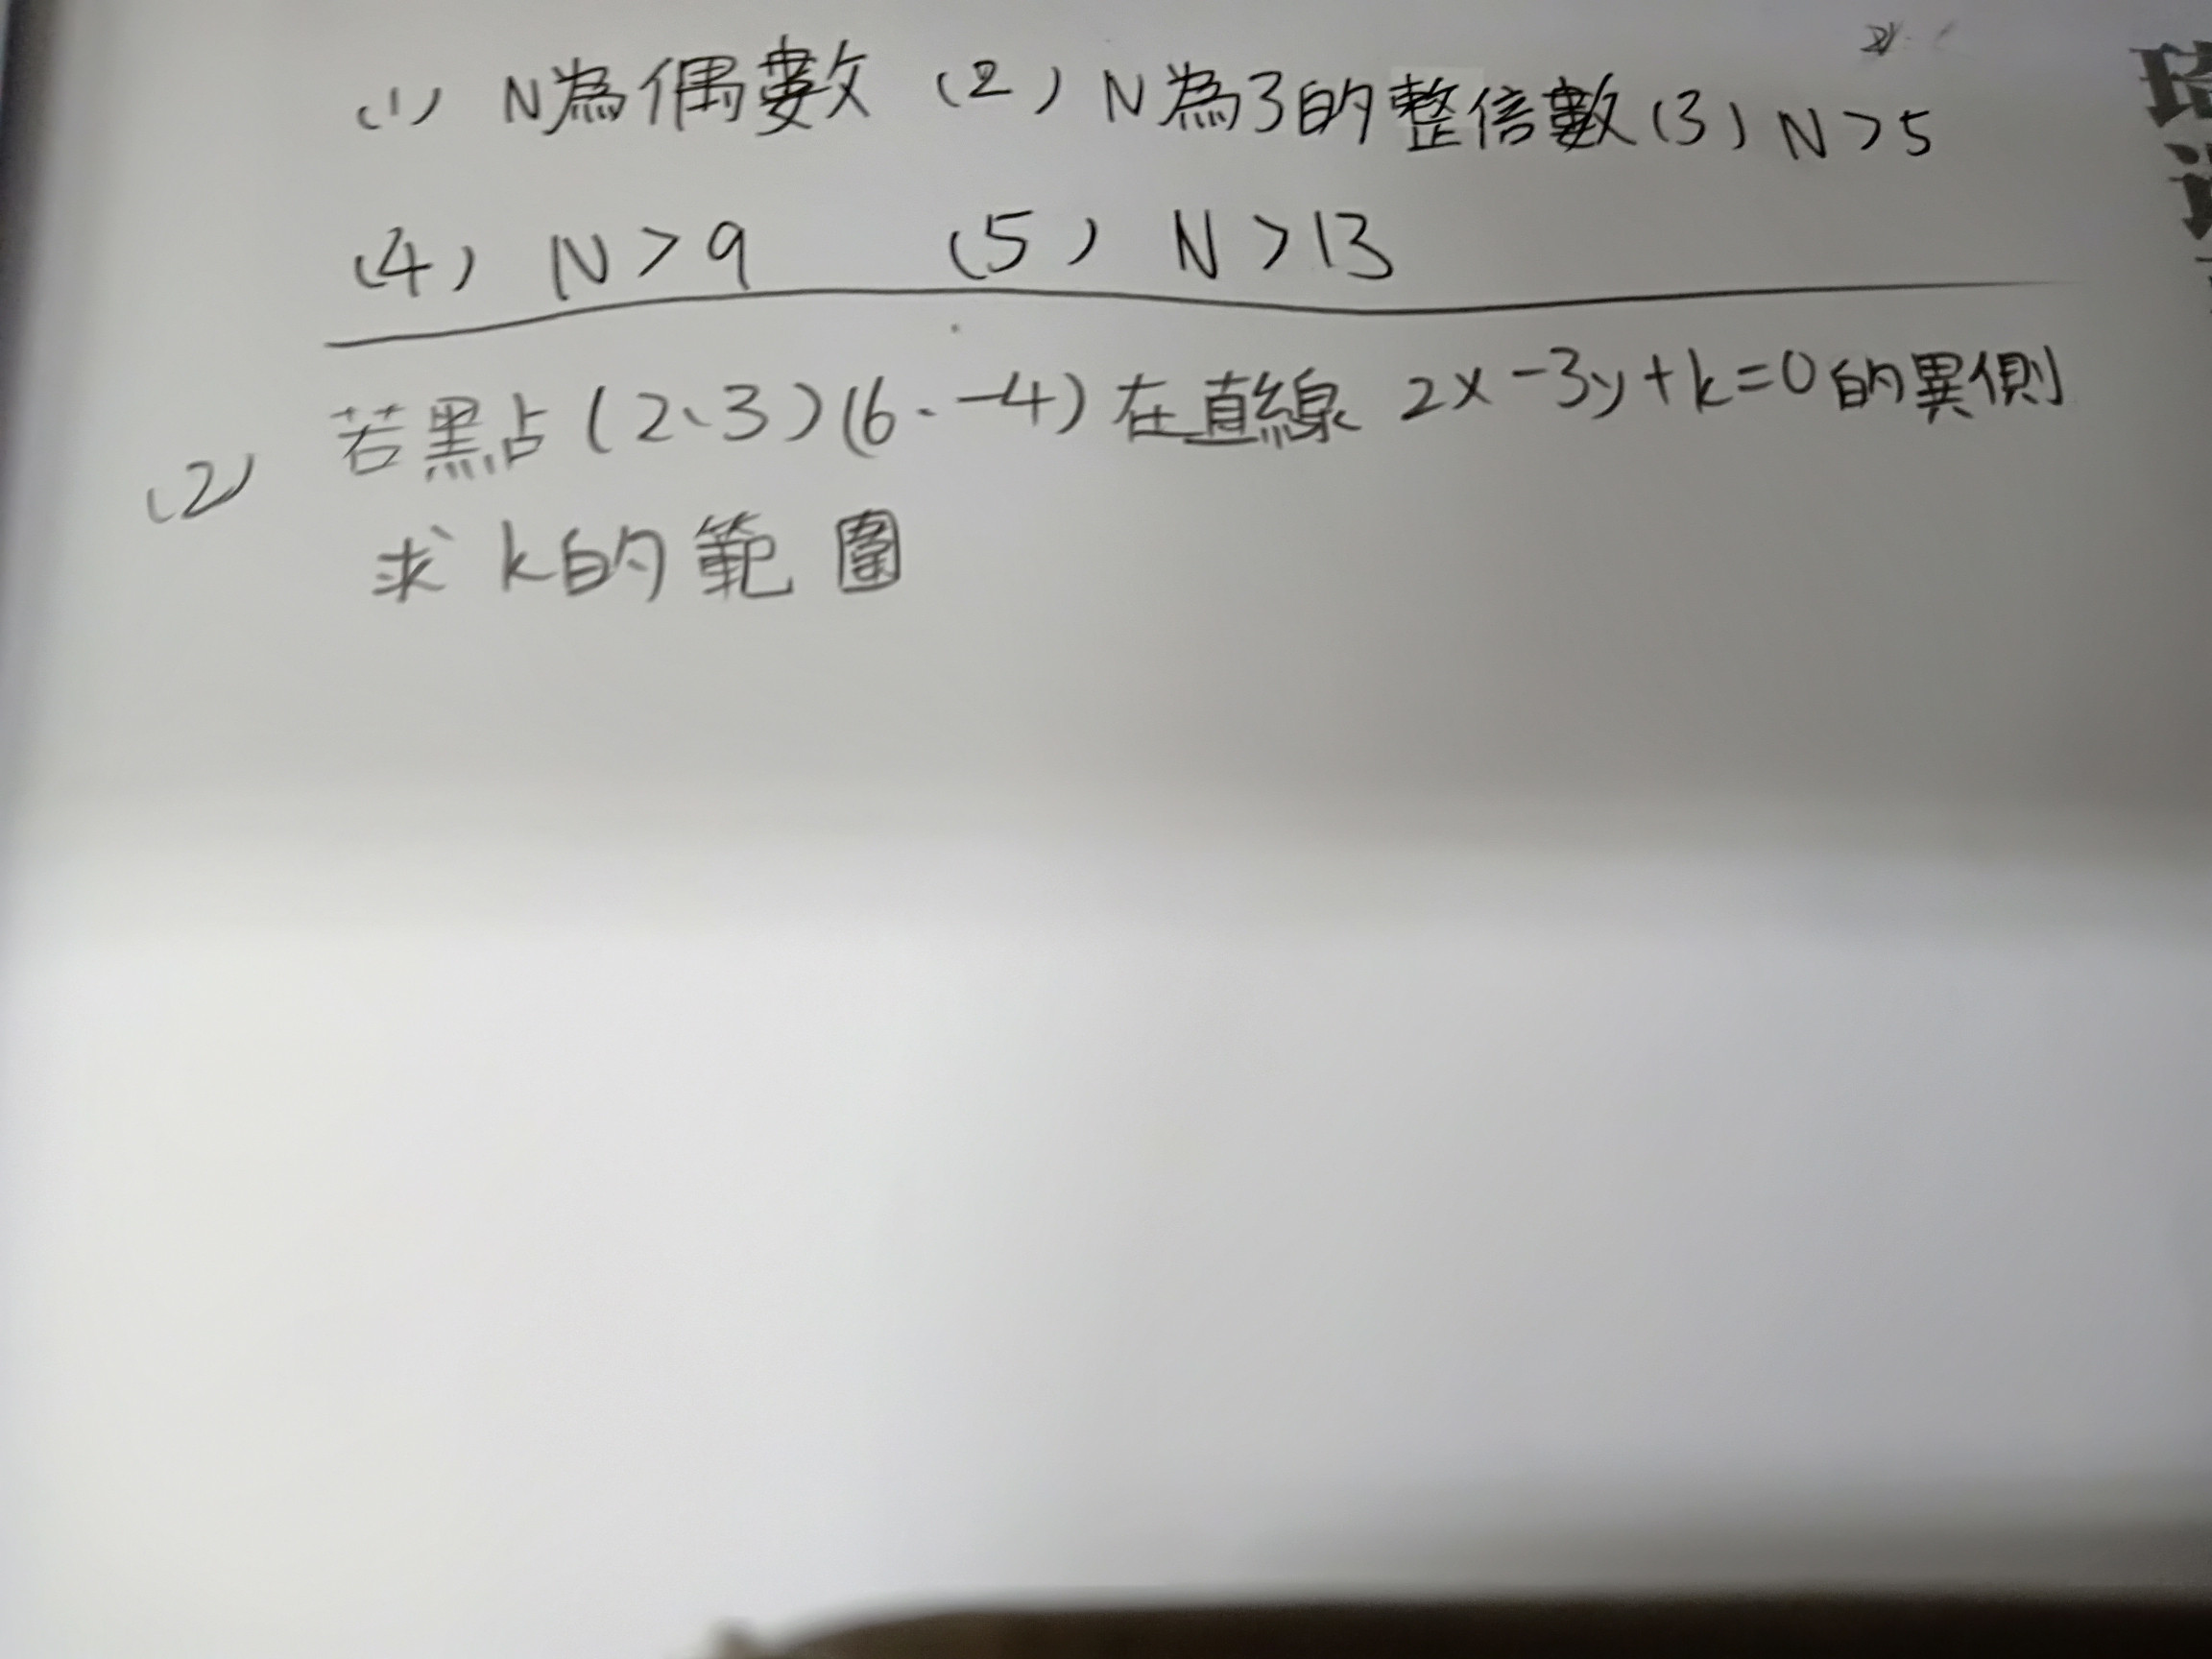 (1) N為偶數 (2) N為3的整倍數 (3) N>5
(4) N>9 (5) N>13
(2) 若點(2、3)(6、-4)在直線 2x-3y+k=0的異側
求k的範圍